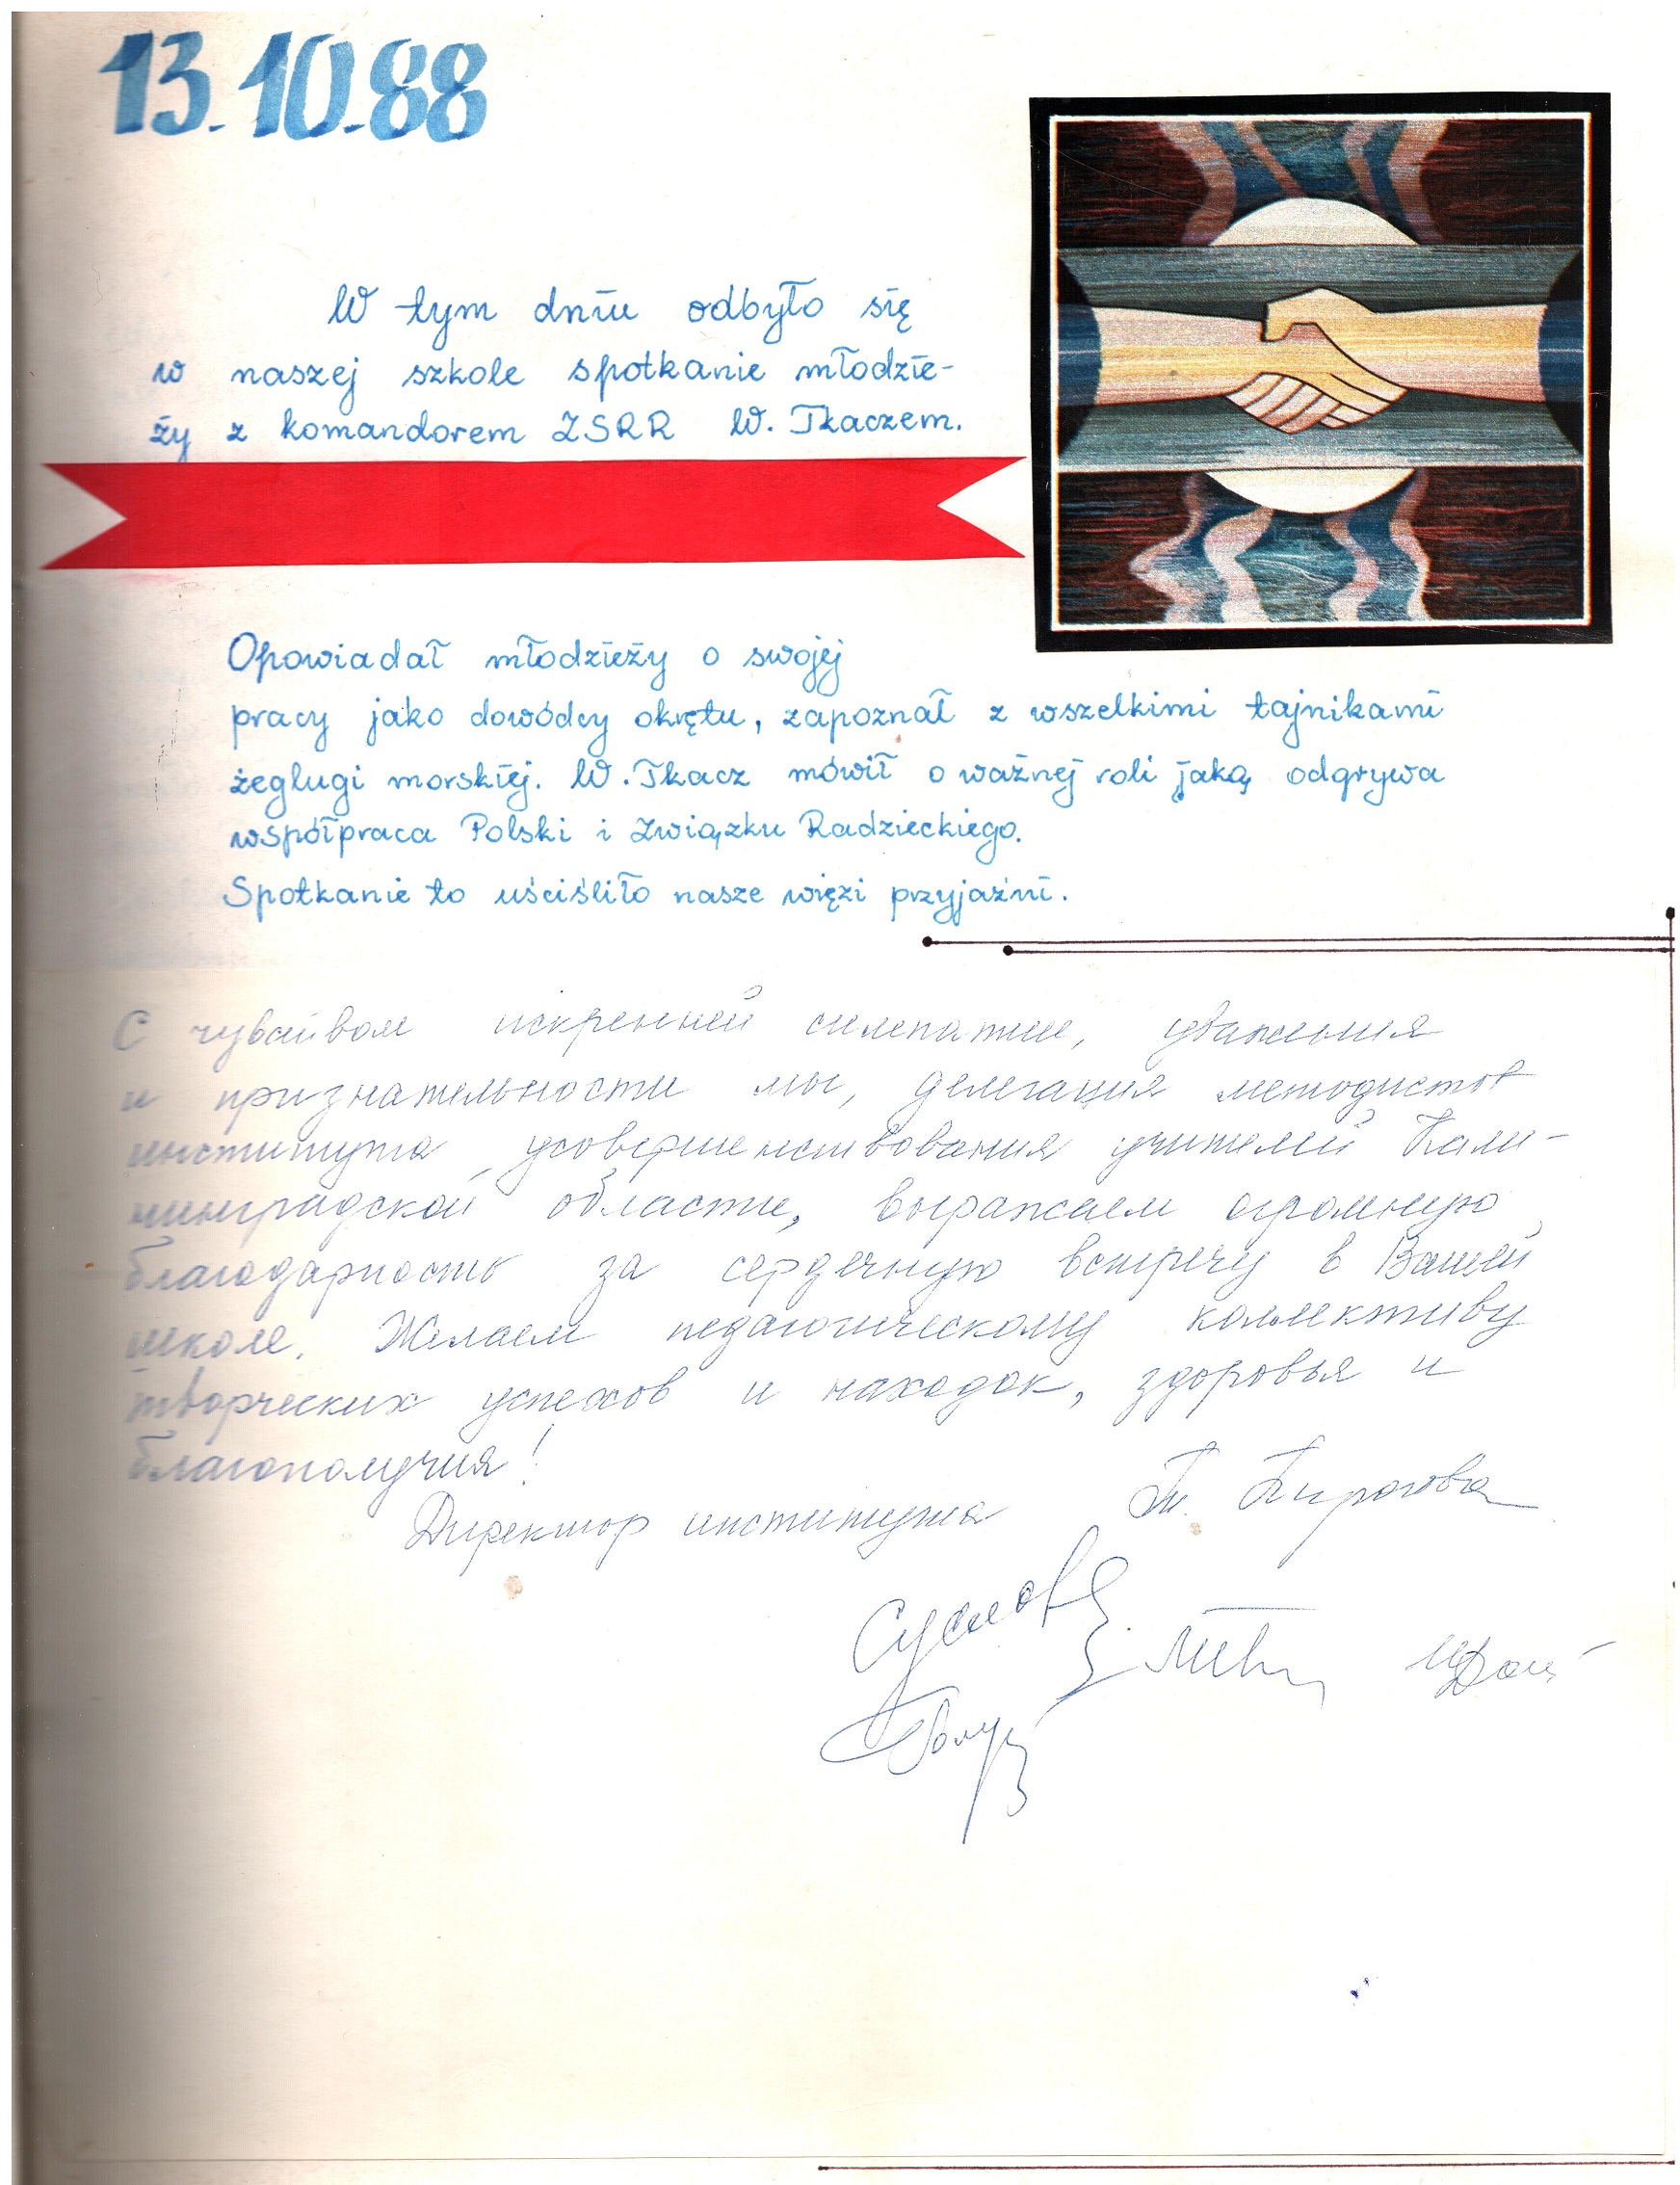 13.10.88
W tym dniu odbyło się
w naszej szkole spotkanie młodzie-
ży z komandorem ZSRR W. Tkaczem.
Opowiadał młodzieży o swojej
pracy jako dowódcy okrętu, zapoznał z wszelkimi tajnikami
żeglugi morskiej. W. Tkacz mówił o ważnej roli jaką odgrywa
współpraca Polski i Związku Radzieckiego.
Spotkanie to uściśliło nasze więzi przyjaźni.
С чувством искренней симпатии, уважения
и признательности мы, делегация методистов
института усовершенствования учителей Кали-
нинградской области, выражаем огромную
благодарность за сердечную встречу в Вашей
школе. Желаем педагогическому коллективу
творческих успехов и находок, здоровья и
благополучия!
Директор института Т. Пирогова